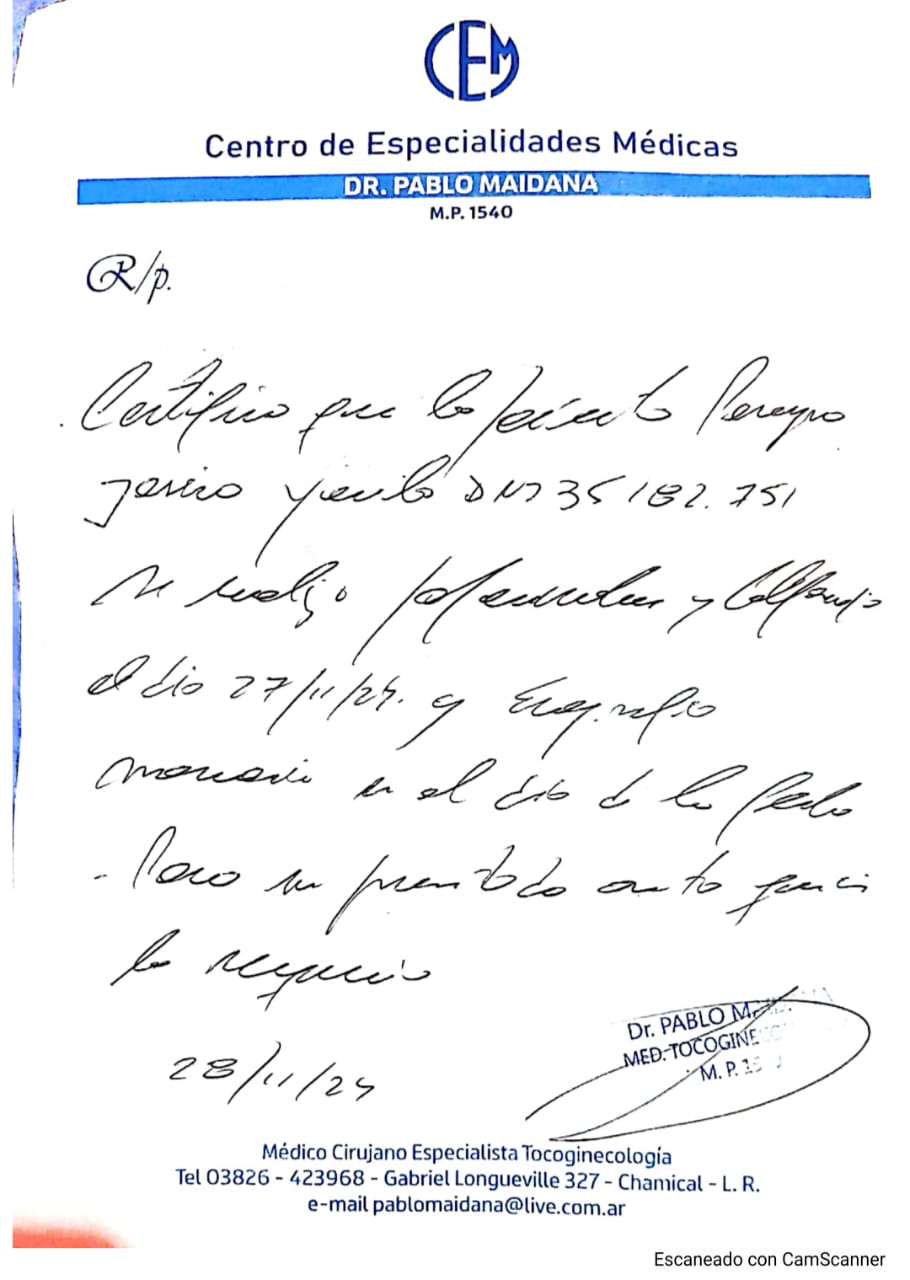 CEM
Centro de Especialidades Médicas
DR. PABLO MAIDANA
M.P. 1540
R/p.
Certifico que la paciente Pereyra
Yanila DNI 35182.751
se realizo papanicolau y Colposcopia
el dia 27/11/24. y Ecografia
mamaria en el dia de la fecha
- Para ser presentado ante quien
lo requiera
28/11/24
Dr. PABLO M
MED. TOCOGINECO
M. P. 15
Médico Cirujano Especialista Tocoginecología
Tel 03826 - 423968 - Gabriel Longueville 327 - Chamical - L. R.
e-mail pablomaidana@live.com.ar
Escaneado con CamScanner